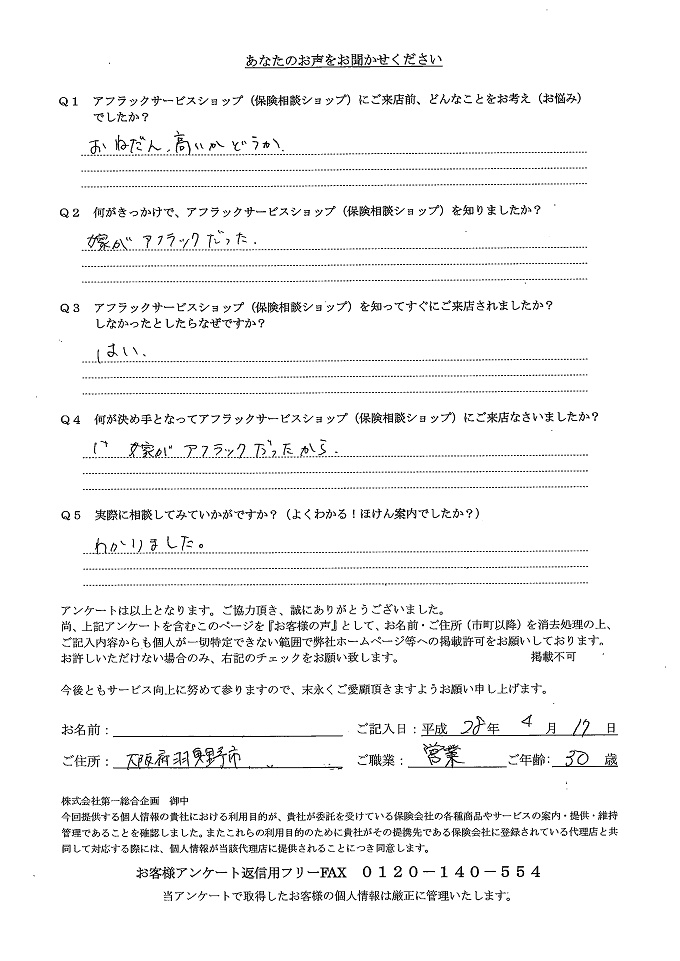 あなたのお声をお聞かせください
Q1 アフラックサービスショップ（保険相談ショップ）にご来店前、どんなことをお考え（お悩み）
でしたか？
おねだん、高いかどうか、
Q2 何がきっかけで、アフラックサービスショップ（保険相談ショップ）を知りましたか？
嫁がアフラックだった.
Q3 アフラックサービスショップ（保険相談ショップ）を知ってすぐにご来店されましたか？
しなかったとしたらなぜですか？
はい、
Q4 何が決め手となってアフラックサービスショップ（保険相談ショップ）にご来店なさいましたか？
嫁がアフラックだったから.
Q5 実際に相談してみていかがですか？（よくわかる！ほけん案内でしたか？）
わかりました。
アンケートは以上となります。ご協力頂き、誠にありがとうございました。
尚、上記アンケートを含むこのページを『お客様の声』として、お名前・ご住所（市町以降）を消去処理の上、
ご記入内容からも個人が一切特定できない範囲で弊社ホームページ等への掲載許可をお願いしております。
お許しいただけない場合のみ、右記のチェックをお願い致します。 掲載不可
今後ともサービス向上に努めて参りますので、末永くご愛顧頂きますようお願い申し上げます。
お名前： ご記入日：平成 28年 4月 17日
ご住所： 大阪府羽曳野市 ご職業： 営業 ご年齢： 30歳
株式会社第一総合企画 御中
今回提供する個人情報の貴社における利用目的が、貴社が委託を受けている保険会社の各種商品やサービスの案内・提供・維持
管理であることを確認しました。またこれらの利用目的のために貴社がその提携先である保険会社に登録されている代理店と共
同して対応する際には、個人情報が当該代理店に提供されることにつき同意します。
お客様アンケート返信用フリーFAX ０１２０－１４０－５５４
当アンケートで取得したお客様の個人情報は厳正に管理いたします。